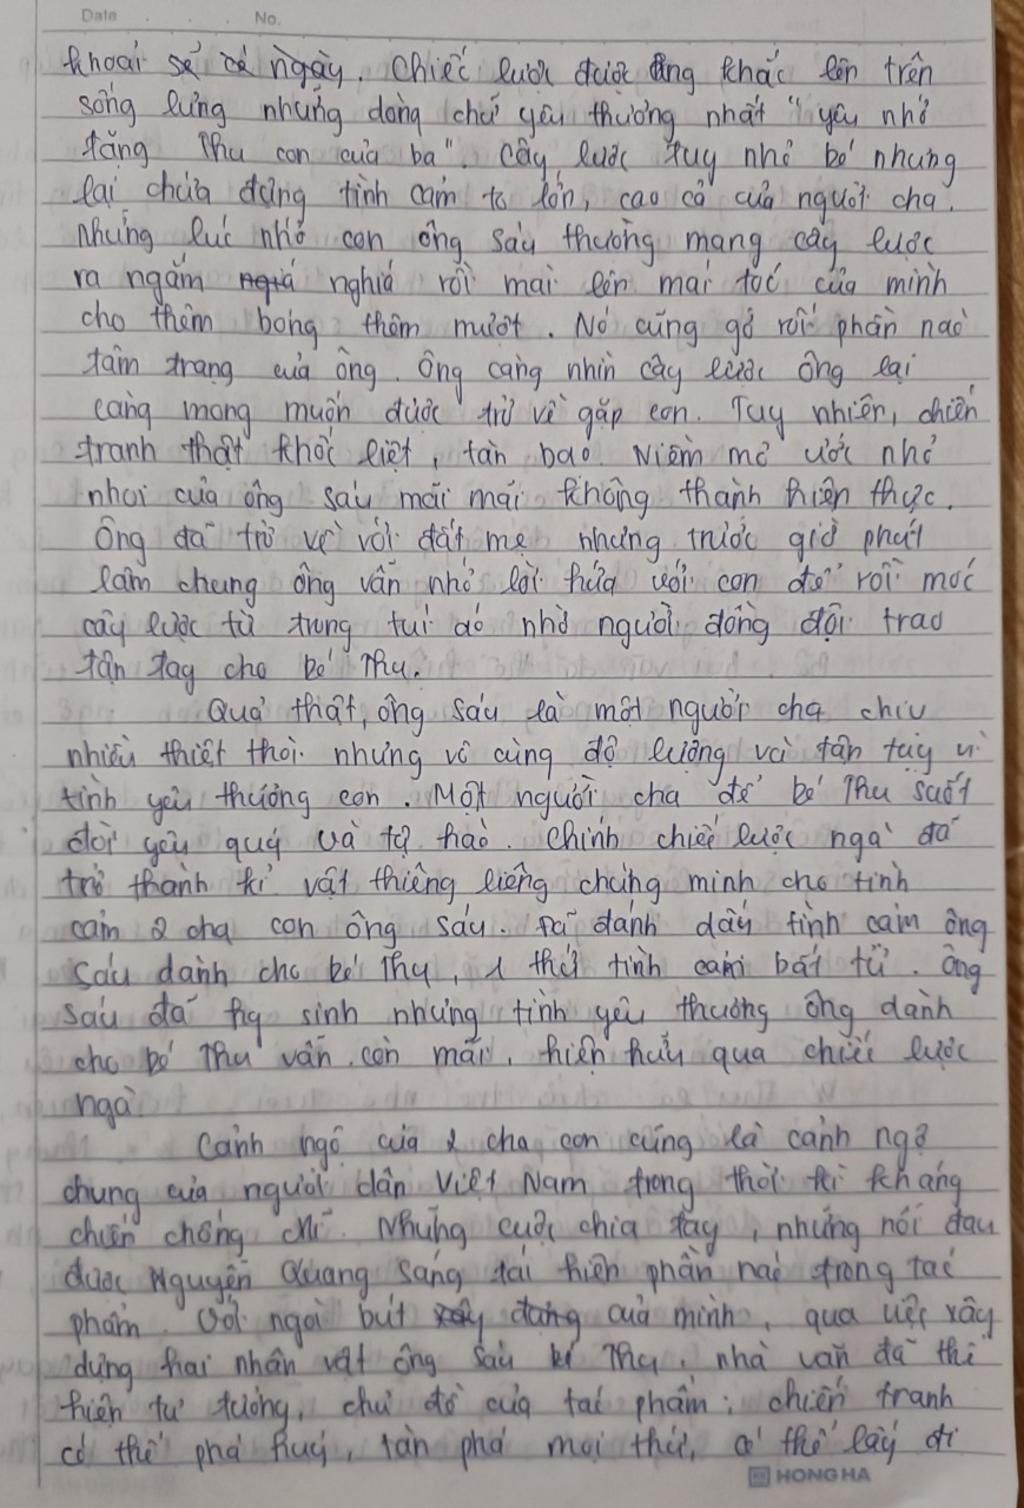 Date No.
khoái sẻ cả ngày. Chiếc lược được ông khắc lên trên
sống lưng những dòng chữ yêu thương nhất "yêu nhớ
tặng Thu con của ba". Cây lược tuy nhỏ bé nhưng
lại chứa đựng tình cảm to lớn, cao cả của người cha.
Những lúc nhớ con ông Sáu thường mang cây lược
ra ngắm nghía rồi mài lên mái tóc của mình
cho thêm bóng thêm mượt. Nó cũng gỡ rối phần nào
tâm trạng của ông. Ông càng nhìn cây lược ông lại
càng mong muốn được trở về gặp con. Tuy nhiên, chiến
tranh thật khốc liệt, tàn bạo. Niềm mơ ước nhỏ
nhoi của ông Sáu mãi mãi không thành hiện thực.
Ông đã trở về với đất mẹ nhưng trước giờ phút
lâm chung ông vẫn nhớ lời hứa với con để rồi móc
cây lược từ trong túi áo nhờ người đồng đội trao
tận tay cho bé Thu.
Quả thật, ông Sáu là một người cha chịu
nhiều thiệt thòi nhưng vô cùng độ lượng và tận tụy vì
tình yêu thương con. Một người cha để bé Thu suốt
đời yêu quý và tự hào. Chính chiếc lược ngà đã
trở thành kỉ vật thiêng liêng chứng minh cho tình
cảm 2 cha con ông Sáu. Đã đánh dấu tình cảm ông
Sáu dành cho bé Thu, 1 thứ tình cảm bất tử. Ông
Sáu đã hy sinh nhưng tình yêu thương ông dành
cho bé Thu vẫn còn mãi, hiện hữu qua chiếc lược
ngà.
Cảnh ngộ của 2 cha con cũng là cảnh ngộ
chung của người dân Việt Nam trong thời kì kháng
chiến chống Mĩ. Những cuộc chia tay, những nỗi đau
được Nguyễn Quang Sáng tái hiện phần nào trong tác
phẩm. Với ngòi bút của mình, qua việc xây
dựng hai nhân vật ông Sáu bé Thu, nhà văn đã thể
hiện tư tưởng, chủ đề của tác phẩm: chiến tranh
có thể phá huỷ, tàn phá mọi thứ, có thể lấy đi
HONG HA